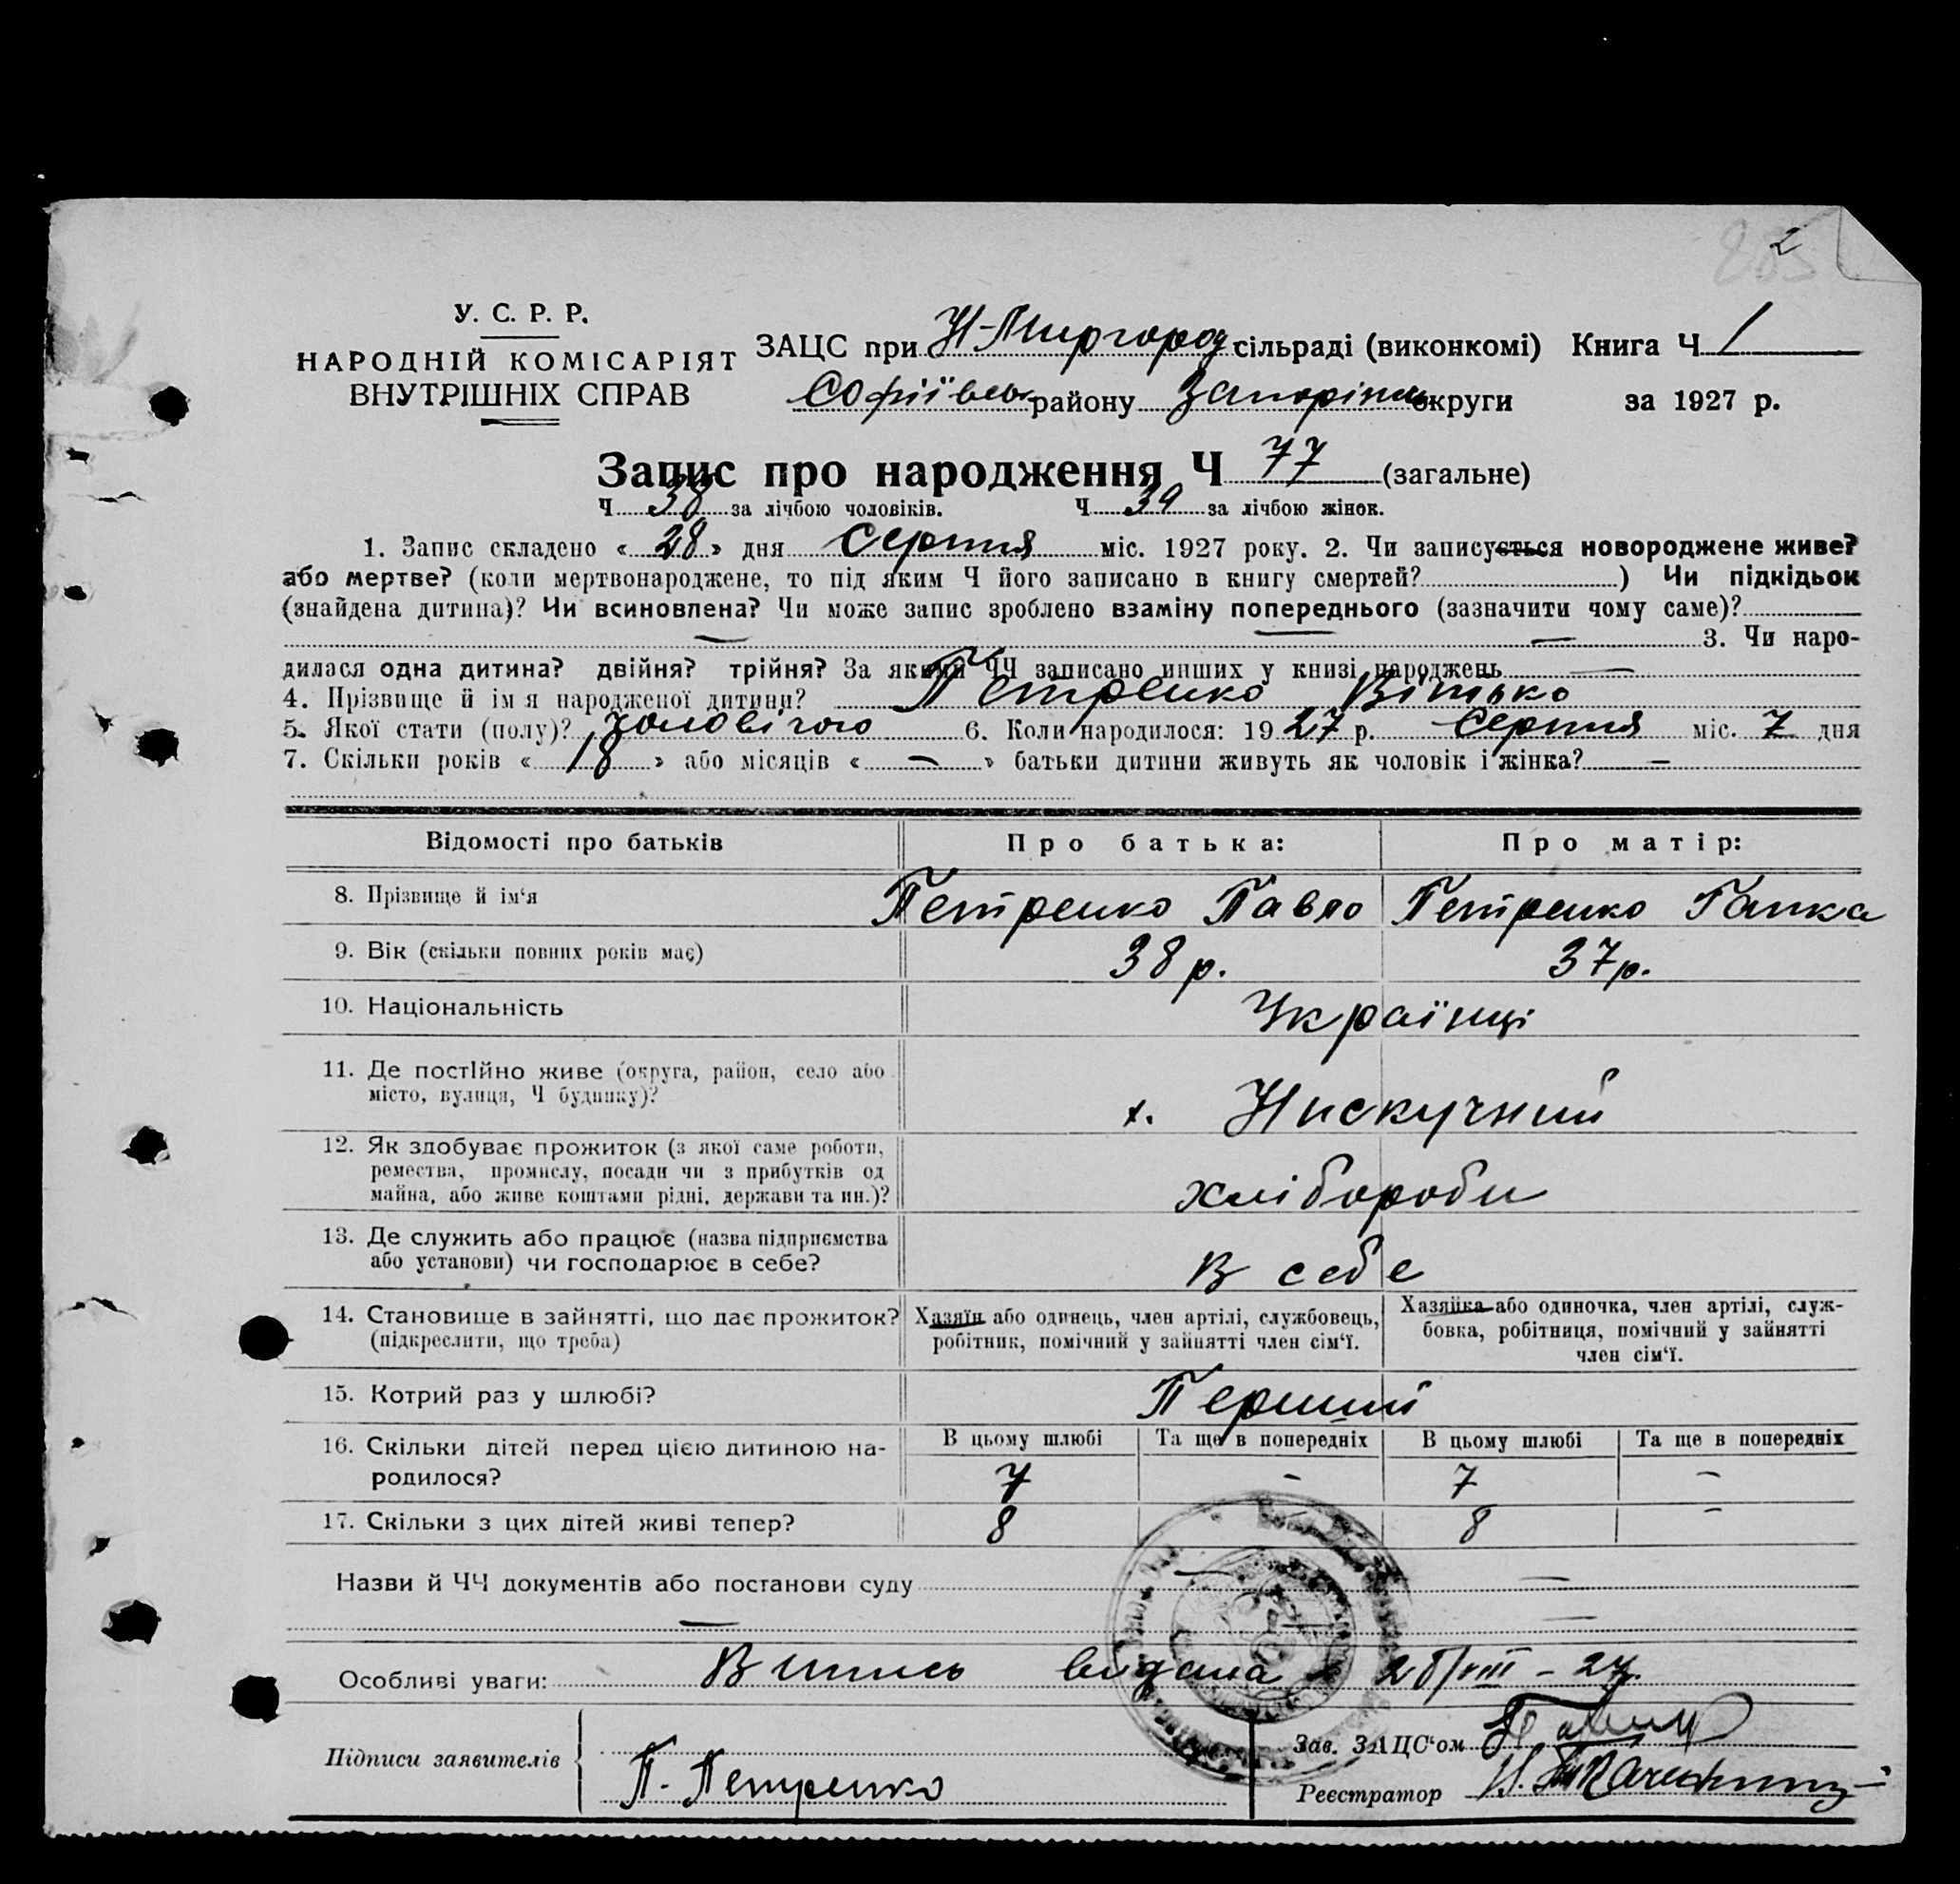 2
У. С. Р. Р.
НАРОДНІЙ КОМІСАРІЯТ
ВНУТРІШНІХ СПРАВ
ЗАЦС при Н-Миргород сільраді (виконкомі) Книга Ч 1
Софіївськ району Запоріжськ округи за 1927 р.
Запис про народження Ч 77 (загальне)
Ч 38 за лічбою чоловіків. Ч 39 за лічбою жінок.
1. Запис складено « 28 » дня Серпня міс. 1927 року. 2. Чи записується новороджене живе?
або мертве? (коли мертвонароджене, то під яким Ч його записано в книгу смертей? ) Чи підкідьок
(знайдена дитина)? Чи всиновлена? Чи може запис зроблено взаміну попереднього (зазначити чому саме)?
— — — 3. Чи наро-
дилася одна дитина? двійня? трійня? За якими ЧЧ записано инших у книзі народжень —
4. Прізвище й ім'я народженої дитини? Петренко Вітько
5. Якої стати (полу)? чоловічого 6. Коли народилося: 1927 р. Серпня міс. 7 дня
7. Скільки років « 18 » або місяців « — » батьки дитини живуть як чоловік і жінка? —
Відомості про батьків Про батька: Про матір:
8. Прізвище й ім'я Петренко Павло Петренко Гапка
9. Вік (скільки повних років має) 38 р. 37 р.
10. Національність Українці
11. Де постійно живе (округа, район, село або
місто, вулиця, Ч будинку)? х. Нискучний
12. Як здобуває прожиток (з якої саме роботи,
ремества, промислу, посади чи з прибутків од
майна, або живе коштами рідні, держави та ин.)? хлібороби
13. Де служить або працює (назва підприємства
або установи) чи господарює в себе? В себе
14. Становище в зайнятті, що дає прожиток?
(підкреслити, що треба)
Хазяїн або одинець, член артілі, службовець,
робітник, помічний у зайнятті член сім'ї.
Хазяйка або одиночка, член артілі, служ-
бовка, робітниця, помічний у зайнятті
член сім'ї.
15. Котрий раз у шлюбі? Перший
16. Скільки дітей перед цією дитиною на-
родилося?
В цьому шлюбі Та ще в попередніх В цьому шлюбі Та ще в попередніх
7 — 7 —
17. Скільки з цих дітей живі тепер? 8 8 —
Назви й ЧЧ документів або постанови суду — —
— — —
Особливі уваги: Випись видана 28/VIII – 27.
Підписи заявителів П. Петренко
Зав. ЗАЦС'ом
Реєстратор